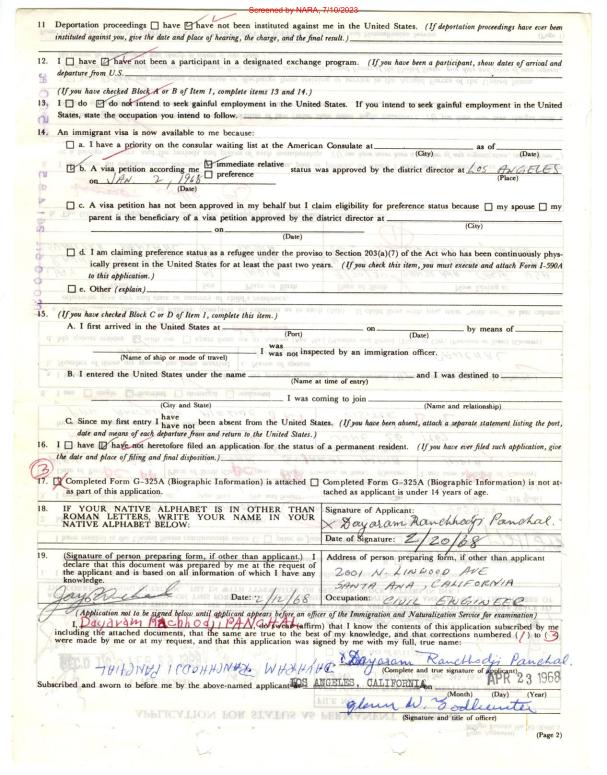 Screened by NARA, 7/10/2023
11 Deportation proceedings ☐ have ☑ have not been instituted against me in the United States. (If deportation proceedings have ever been
instituted against you, give the date and place of hearing, the charge, and the final result.)
12. I ☐ have ☑ have not been a participant in a designated exchange program. (If you have been a participant, show dates of arrival and
departure from U.S.
(If you have checked Block A or B of Item 1, complete items 13 and 14.)
13. I ☐ do ☑ do not intend to seek gainful employment in the United States. If you intend to seek gainful employment in the United
States, state the occupation you intend to follow.
14. An immigrant visa is now available to me because:
☐ a. I have a priority on the consular waiting list at the American Consulate at as of
(City) (Date)
☑ b. A visa petition according me ☑ immediate relative ☐ preference status was approved by the district director at LOS ANGELES
on JAN. 2, 1968 (Place)
(Date)
☐ c. A visa petition has not been approved in my behalf but I claim eligibility for preference status because ☐ my spouse ☐ my
parent is the beneficiary of a visa petition approved by the district director at
(City)
on
(Date)
☐ d. I am claiming preference status as a refugee under the proviso to Section 203(a)(7) of the Act who has been continuously phys-
ically present in the United States for at least the past two years. (If you check this item, you must execute and attach Form I-590A
to this application.)
☐ e. Other (explain)
15. (If you have checked Block C or D of Item 1, complete this item.)
A. I first arrived in the United States at on by means of
(Port) (Date)
I was
was not inspected by an immigration officer.
(Name of ship or mode of travel)
B. I entered the United States under the name and I was destined to
(Name at time of entry)
I was coming to join
(City and State) (Name and relationship)
C. Since my first entry I have
have not been absent from the United States. (If you have been absent, attach a separate statement listing the port,
date and means of each departure from and return to the United States.)
16. I ☐ have ☑ have not heretofore filed an application for the status of a permanent resident. (If you have ever filed such application, give
the date and place of filing and final disposition.)
3
17. ☒ Completed Form G-325A (Biographic Information) is attached ☐ Completed Form G-325A (Biographic Information) is not at-
as part of this application. tached as applicant is under 14 years of age.
18. IF YOUR NATIVE ALPHABET IS IN OTHER THAN
ROMAN LETTERS, WRITE YOUR NAME IN YOUR
NATIVE ALPHABET BELOW:
Signature of Applicant:
X Dayaram Ranchhodji Panchal.
Date of Signature: 2/20/68
19. (Signature of person preparing form, if other than applicant.) I
declare that this document was prepared by me at the request of
the applicant and is based on all information of which I have any
knowledge.
Date: 2/12/68
Address of person preparing form, if other than applicant
2001 N. LINWOOD AVE
SANTA ANA, CALIFORNIA
Occupation: CIVIL ENGINEER
(Application not to be signed below until applicant appears before an officer of the Immigration and Naturalization Service for examination)
I, Dayaram Rachhodji PANCHAL do swear (affirm) that I know the contents of this application subscribed by me
including the attached documents, that the same are true to the best of my knowledge, and that corrections numbered (1) to (3)
were made by me or at my request, and that this application was signed by me with my full, true name:
X Dayaram Ranchhodji Panchal.
(Complete and true signature of applicant)
RANCHHODJI PANCHAL
Subscribed and sworn to before me by the above-named applicant at LOS ANGELES, CALIFORNIA on APR 23 1968
(Month) (Day) (Year)
(Signature and title of officer)
(Page 2)